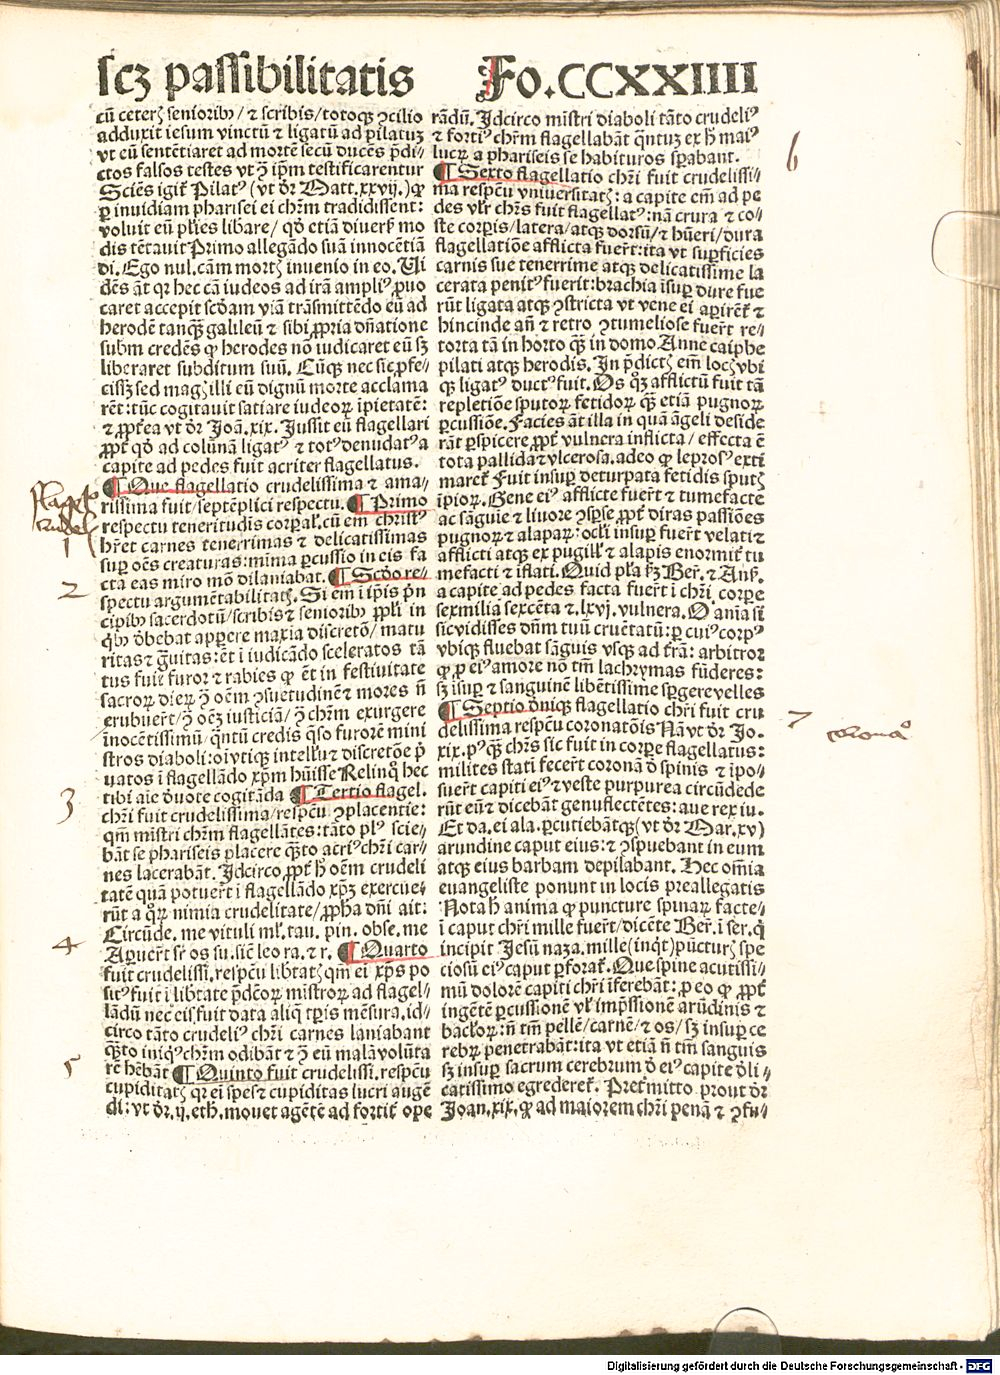 scꝫ passibilitatis Fo.CCXXIIII
cū ceterꝭ senioribꝰ/ ⁊ scribis/ totoqꝫ ꝯcilio
adduxit iesum vinctū ⁊ ligatū ad pilatuꝫ
vt eū sentētiaret ad mortē secū ducēs p̄di-
ctos falsos testes vt ꝯ ip̄m testificarentur
Sciēs igit̄ Pilatꝰ (vt dr̄ Matt.xxvij.) ꝙ
ꝑ inuidiam pharisei ei chr̄m tradidissent:
voluit eū pl̄ies libare/ qd̄ etiā diuers̄ mo
dis tētauit Primo allegādo suā innocētiā
di. Ego nul. cām mortꝭ inuenio in eo. Ui
dēs āt qꝛ hec cā iudeos ad irā ampliꝰ ꝓuo
caret accepit scd̄am viā trāsmittēdo eū ad
herodē tanqꝫ galileū ⁊ sibi ꝓpria dn̄atione
subm̄ credēs ꝙ herodes nō iudicaret eū sꝫ
liberaret subditum suū. Cūqꝫ nec sic ꝓfe-
cissꝫ sed magꝭ illi eū dignū morte acclama
rēt: tūc cogitauit satiare iudeoꝝ īpietatē:
⁊ ꝓpt̄ea vt dr̄ Joā.xix. Jussit eū flagellari
ꝓpt̄ qd̄ ad colūnā ligatꝰ ⁊ totꝰ denudatꝰ a
capite ad pedes fuit acriter flagellatus.
¶ Que flagellatio crudelissima ⁊ ama-
rissima fuit/ septēplici respectu. ¶ Primo
respectu teneritudīs corꝑal̄. cū em̄ christꝰ
hr̄et carnes tenerrimas ⁊ delicatissimas
suꝑ oēs creaturas: mīma ꝑcussio in eis fa
cta eas miro mō dilaniabat. ¶ Scd̄o re-
spectu argumētabilitatꝭ. Si em̄ ī ip̄is pn̄
cipibꝰ sacerdotū/ scribis ⁊ senioribꝰ ppl̄i in
qb̄ꝰ dēbebat apꝑere maxīa discretō/ matu
ritas ⁊ gͣuitas: ēt ī iudicādo sceleratos tā
tus fuit furor ⁊ rabies ꝙ ēt in festiuitate
sacroꝝ dieꝝ ꝯ oēm ꝯsuetudinē ⁊ mores n̄
erubuert̄/ ꝯ oēꝫ iusticiā/ ꝯ chr̄m exurgere
īnocētissimū/ qn̄tū credis qso furorē mini
stros diaboli: oīvtiqꝫ intellu ⁊ discretōe p̄
uatos ī flagellādo xp̄m hūisse Relinq̄ hec
tibi aīe deuote cogitāda ¶ Tertio flagel.
chr̄i fuit crudelissima/ respcū ꝯplacentie:
qm̄ mīstri chr̄m flagellātes: tāto plꝰ scie-
bāt se phariseis placere qꝫto acriꝰ chr̄i car-
nes lacerabāt. Jdcirco ꝓpt̄ h̄ oēm crudeli
tatē quā potuert̄ ī flagellādo xp̄ꝫ exercue-
rūt a qꝝ nimia crudelitate/ ꝓpha dn̄i ait:
Circūde. me vituli ml̄. tau. pin. obse. me
Aperuert̄ sr̄ os su. sic̄ leo ra. ⁊ r. ¶ Quarto
fuit crudelissī. respcū lib̄tatꝭ qm̄ ei xp̄s po
sitꝰ fuit ī lib̄tate p̄dc̄oꝝ mīstroꝝ ad flagel-
lādū nec eis fuit data aliq̄ tꝑis mēsura. id-
circo tāto crudeliꝰ chr̄i carnes laniabant
qꝫto iniqꝰ chr̄m odibāt ⁊ ꝯ eū malā volūta
tē hēbāt ¶ Quinto fuit crudelissī. respcū
cupiditatꝭ qꝛ ei spes ⁊ cupiditas lucri augē
di: vt dr̄. ij. eth. mouet agētē ad fortit̄ ope
rādū. Jdcirco mīstri diaboli tāto crudeliꝰ
⁊ fortiꝰ chr̄m flagellabāt qn̄tuꝫ ex h̄ maiꝰ
lucꝝ a phariseis se habituros sꝑabant.
¶ Sexto flagellatio chr̄i fuit crudelissi-
ma respcū vniuersitatꝭ: a capite em̄ ad pe
des vsꝫ chr̄s fuit flagellatꝰ: nā crura ⁊ co-
ste corꝑis/ latera/ atqꝫ dorsū/ ⁊ hūeri/ dura
flagellatiōe afflicta fuert̄: ita vt suꝑficies
carnis sue tenerrime atqꝫ delicatissime la
cerata penitꝰ fuerit: brachia īsuꝑ dure fue
rūt ligata atqꝫ ꝯstricta vt vene ei aꝑiren̄t ⁊
hincinde an̄ ⁊ retro ꝯtumeliose fuert̄ re-
torta tā in horto qꝫ in domo Anne caiphe
pilati atqꝫ herodis. Jn p̄dictꝭ em̄ locꝭ vbi
qꝫ ligatꝰ ductꝰ fuit. Os qꝫ afflictū fuit tā
repletiōe sputoꝝ fetidoꝝ qꝫ etiā pugnoꝝ
ꝑcussiōe. Facies āt illa in quā āgeli deside
rāt ꝑspicere ꝓpt̄ vulnera inflicta/ effecta ē
tota pallida ⁊ vlcerosa. adeo ꝙ leprosꝰ exti
maret̄ Fuit insuꝑ deturpata fetidis sputꝭ
īpioꝝ. Gene eiꝰ afflicte fuert̄ ⁊ tumefacte
ac sāguīe ⁊ liuore ꝯsꝑse ꝓpt̄ diras passiōes
pugnoꝝ ⁊ alapaꝝ: ocl̄i insuꝑ fuert̄ velati ⁊
afflicti atqꝫ ex pugill̄ ⁊ alapis enormit̄ tu
mefacti ⁊ iflati. Quid pl̄a sꝫ Ber̄. ⁊ Ans̄.
a capite ad pedes facta fuert̄ ī chr̄i corꝑe
sexmilia sexcēta ⁊. lxvj. vulnera. O aīa si
sic vidisses dn̄m tuū cruētatū: ꝑ cuiꝰ corpꝰ
vbiqꝫ fluebat sāguis vsqꝫ ad trā: arbitror
ꝙ ꝓ eiꝰ amore nō tm̄ lachrymas fūderes:
sꝫ īsuꝑ ⁊ sanguinē libētissime sꝑgere velles
¶ Septīo deniqꝫ flagellatio chr̄i fuit cru
delissima respcū coronatōis Nā vt dr̄ Jo.
xix. pꝰqꝫ chr̄s sic fuit in corꝑe flagellatus:
milites stati fecert̄ coronā d̄ spinis ⁊ īpo-
suert̄ capiti eiꝰ ⁊ veste purpurea circūdede
rūt eū ⁊ dicebāt genuflectētes: aue rex iu.
Et da. ei ala. ꝑcutiebātqꝫ (vt dr̄ Mar.xv)
arundine caput eius: ⁊ ꝯspuebant in eum
atqꝫ eius barbam depilabant. Hec om̄ia
euangeliste ponunt in locis preallegatis
Nota h̄ anima ꝙ puncture spinaꝝ facte-
ī caput chr̄i mille fuert̄/ dicēte Ber̄. ī ser. q̄
incipit Jesū naza. mille (inqͭ) pūcturꝭ spe
ciosū eiꝰ caput ꝑforat̄. Que spine acutissi-
mū dolorē capiti chr̄i īferebāt: ꝓ eo ꝙ ꝓpt̄
ingētē ꝑcussionē vl̄ imp̄ssionē arūdinis ⁊
bacloꝝ: n̄ tm̄ pellē/ carnē/ ⁊ os/ sꝫ insuꝑ ce
rebꝝ penetrabāt: ita vt etiā n̄ tm̄ sanguis
sꝫ insuꝑ sacrum cerebrum d̄ eiꝰ capite deli-
catissimo egrederet̄. Pret̄mitto prout dr̄
Joan.xix. ꝙ ad maiorem chr̄i penā ⁊ ꝯfu-
1
2
3
4
5
6
7
corona
Digitalisierung gefördert durch die Deutsche Forschungsgemeinschaft - DFG